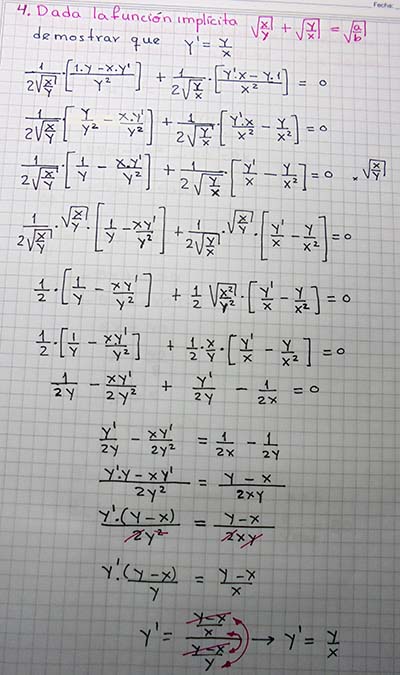 Fecha:
4. Dada la función implícita √(x/y) + √(y/x) = √(a/b)
demostrar que y' = y/x
1/(2√(x/y)) · [(1·y - x·y')/y²] + 1/(2√(y/x)) · [(y'·x - y·1)/x²] = 0
1/(2√(x/y)) · [y/y² - x·y'/y²] + 1/(2√(y/x)) · [y'·x/x² - y/x²] = 0
1/(2√(x/y)) · [1/y - x·y'/y²] + 1/(2√(y/x)) · [y'/x - y/x²] = 0 · √(x/y)
1/(2√(x/y)) · √(x/y) · [1/y - xy'/y²] + 1/(2√(y/x)) · √(x/y) · [y'/x - y/x²] = 0
1/2 · [1/y - xy'/y²] + 1/2 √(x²/y²) · [y'/x - y/x²] = 0
1/2 · [1/y - x·y'/y²] + 1/2 · x/y · [y'/x - y/x²] = 0
1/2y - xy'/2y² + y'/2y - 1/2x = 0
y'/2y - xy'/2y² = 1/2x - 1/2y
(y'·y - xy')/2y² = (y - x)/2xy
y'·(y - x)/2y² = (y - x)/2xy
y'·(y - x)/y = (y - x)/x
y' = ((y - x)/x)/((y - x)/y) → y' = y/x